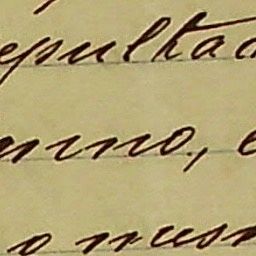 epultad
nno, e
o mesm